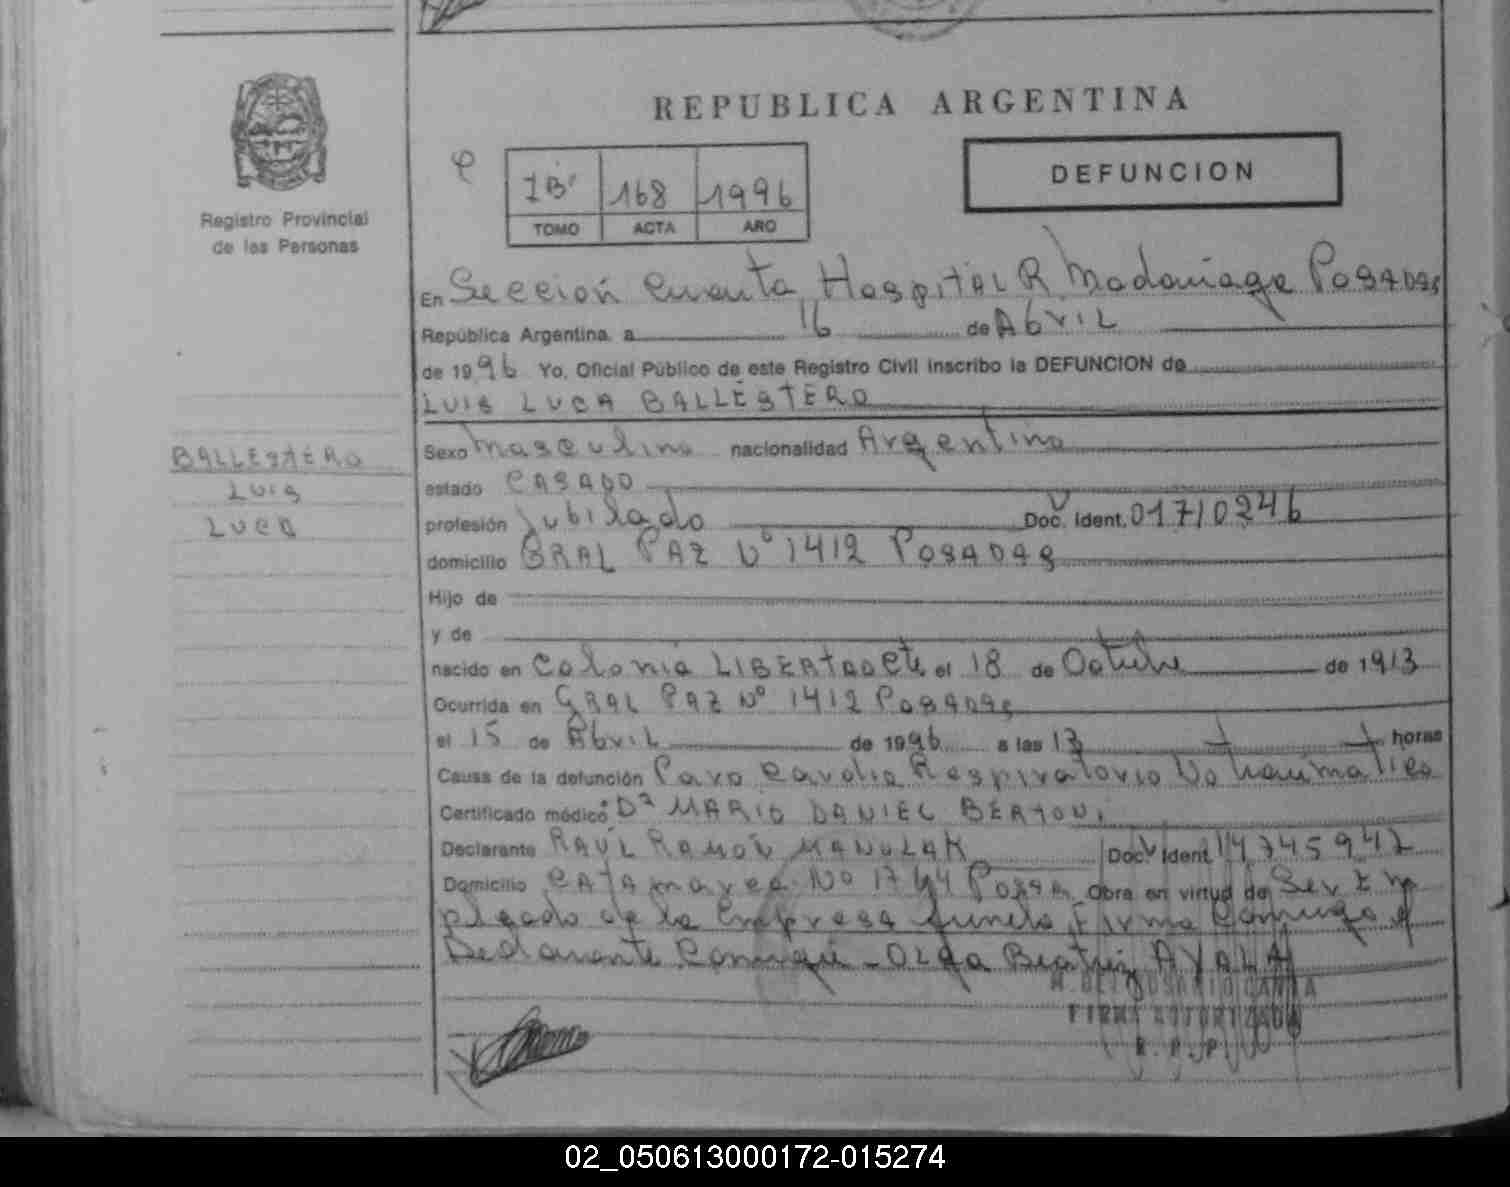 REPUBLICA ARGENTINA
DEFUNCION
168 1996
TOMO ACTA AÑO
Registro Provincial
de las Personas
En Sección Cuarta Hospital R Madariaga POSADAS
República Argentina, a 16 de Abril
de 1996 Yo, Oficial Público de este Registro Civil inscribo la DEFUNCION de
LUIS LUCA BALLESTERO
BALLESTERO
LUIS
LUCA
Sexo Masculino nacionalidad Argentino
estado CASADO
profesión Jubilado Doc. Ident. 01710246
domicilio GRAL PAZ Nº 1412 POSADAS
Hijo de
y de
nacido en Colonia LIBERTAD Cte el 18 de Octubre de 1913
Ocurrida en GRAL PAZ Nº 1412 POSADAS
el 15 de Abril de 1996 a las 13 horas
Causa de la defunción Paro Cardio Respiratorio No traumatico
Certificado médico: Dr MARIO DANIEL BERTONI
Declarante RAÚL RAMÓN MANULAK Doc. Ident 14745942
Domicilio Catamarca Nº 1744 Posa. Obra en virtud de Ser Em
pleado de la Empresa funeb. Firma Conmigo el
Declarante Conmigo - Olga Beatriz AYALA
FIRMA AUTORIZADA
02_050613000172-015274